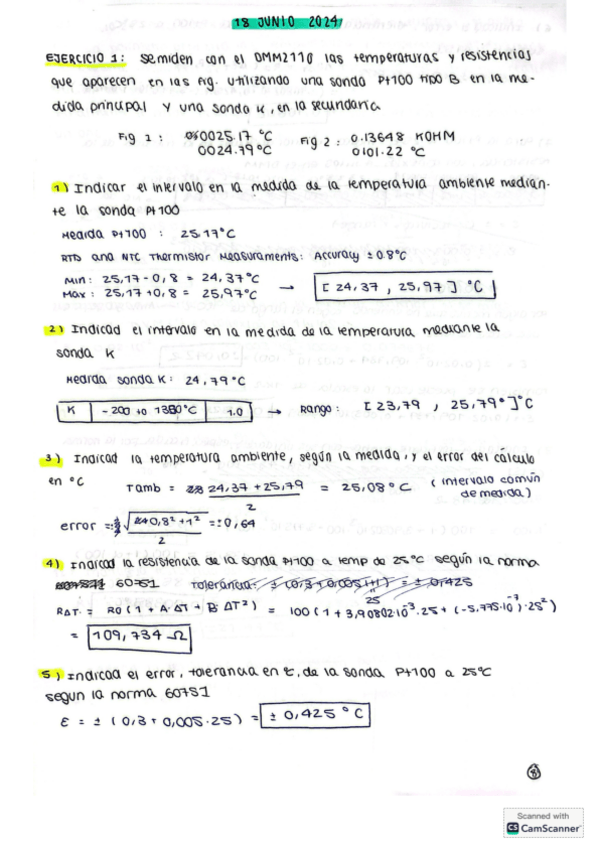 18 JUNIO 2024
EJERCICIO 1: Se miden con el DMM2110 las temperaturas y resistencias
que aparecen en las fig. utilizando una sonda Pt100 tipo B en la me-
dida principal y una sonda K, en la secundaria
Fig 1: 00025.17 ºC
0024.79 ºC
Fig 2: 0.13648 KOHM
0101.22 ºC
1) Indicar el intervalo en la medida de la temperatura ambiente median-
te la sonda Pt100
Medida Pt100 : 25.17ºC
RTD and NTC Thermistor Measuraments: Accuracy ± 0.8ºC
Min: 25,17-0,8 = 24,37ºC
Max: 25,17+0,8 = 25,97ºC → [24,37 , 25,97] ºC
2) Indicad el intervalo en la medida de la temperatura mediante la
sonda K
Medida sonda K: 24.79ºC
K -200 to 1350ºC 1.0 → Rango: [23,79 , 25,79º]ºC
3) Indicad la temperatura ambiente, según la medida, y el error del cálculo
en ºC Tamb = 24,37+25,79 / 2 = 25,08ºC (intervalo común
de medida)
error = ± √0,8²+1² / 2 = ±0,64
4) Indicad la resistencia de la sonda Pt100 a temp de 25ºC según la norma
60751 Tolerancia = ± (0,3+0,005·|t|) = ± 0,425
25
RΔT = R0 (1 + A·ΔT + B·ΔT²) = 100 (1 + 3,90802·10⁻³·25 + (-5,775·10⁻⁷)·25²)
= 109,734 Ω
5) Indicad el error, tolerancia en t, de la sonda Pt100 a 25ºC
segun la norma 60751
ε = ± (0,3 + 0,005·25) = ± 0,425 ºC
Scanned with
CS CamScanner